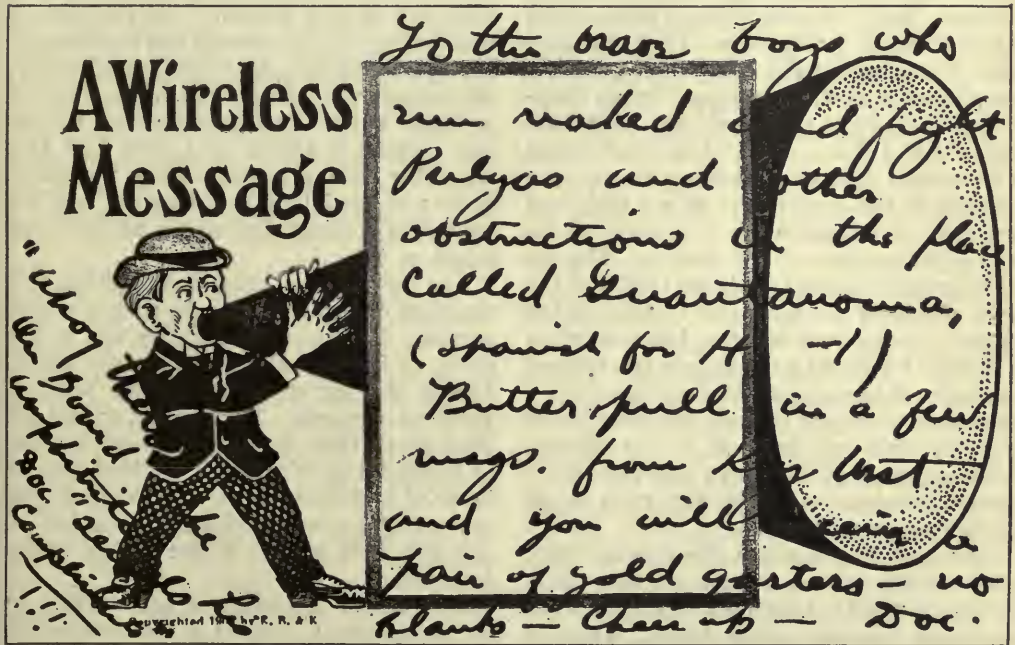 A Wireless
Message
To the brave boys who
run naked and fight
Pulgas and other
obstructions in the place
called Guantanoma,
(Spanish for H—l)
Butter, pull in a few
msgs. from Key West
and you will a
pair of gold garters — no
blanks — Cheer up — Doc.
"Whoy
Board
Doc
!!!!
Copyrighted by R. R. & K